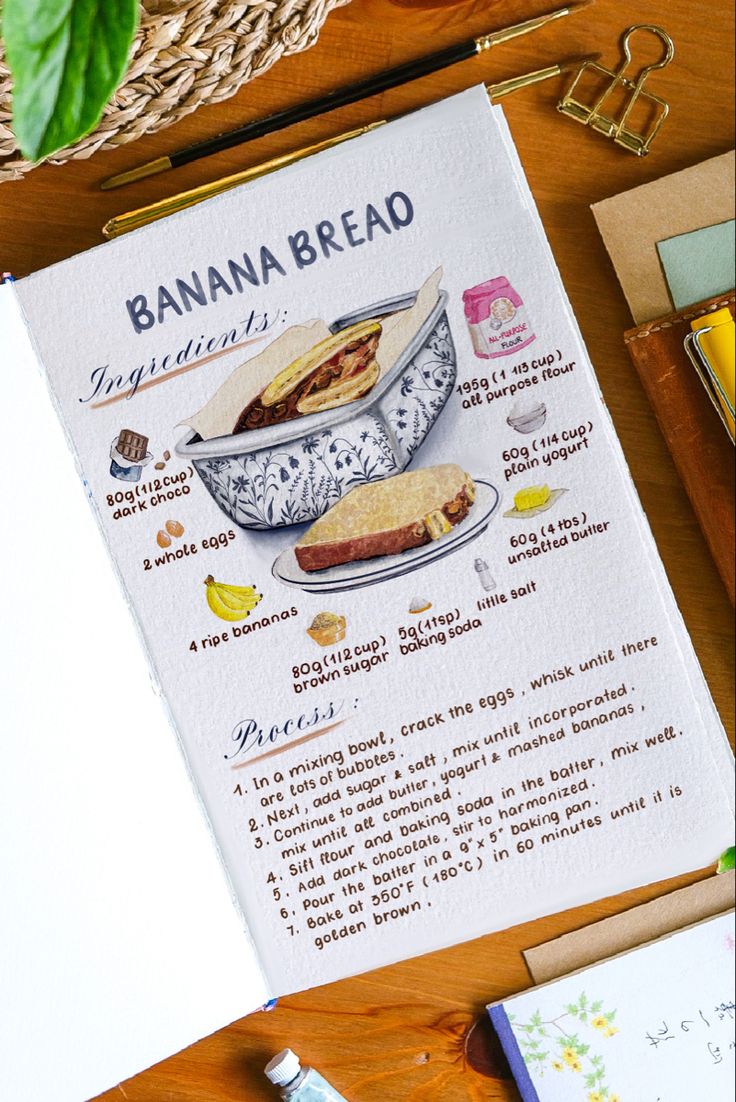 BANANA BREAD
Ingredients :
ALL-PURPOSE
FLOUR
195g (1 1/3 cup)
all purpose flour
80g (1/2 cup)
dark choco
60g (1/4 cup)
plain yogurt
2 whole eggs
60g (4 tbs)
unsalted butter
4 ripe bananas
little salt
80g (1/2 cup)
brown sugar
5g (1tsp)
baking soda
Process :
1. In a mixing bowl, crack the eggs, whisk until there
are lots of bubbles.
2. Next, add sugar & salt, mix until incorporated.
3. Continue to add butter, yogurt & mashed bananas,
mix until all combined.
4. Sift flour and baking soda in the batter, mix well.
5. Add dark chocolate, stir to harmonized.
6. Pour the batter in a 9" x 5" baking pan.
7. Bake at 350°F (180°C) in 60 minutes until it is
golden brown.